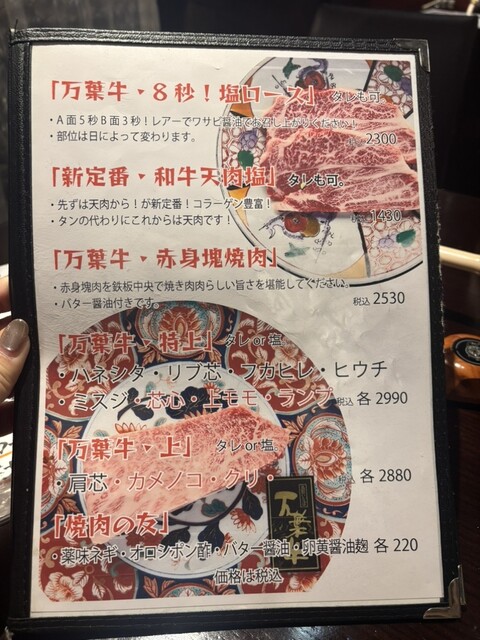 「万葉牛・８秒！塩ロース」 タレも可
・Ａ面５秒Ｂ面３秒！レアーでワサビ醤油でお召し上がりください！
・部位は日によって変わります。
税込 2300
「新定番・和牛天肉塩」 タレも可。
・先ずは天肉から！が新定番！コラーゲン豊富！
・タンの代わりにこれからは天肉です！
税込 1430
「万葉牛・赤身塊焼肉」
・赤身塊肉を鉄板中央で焼き肉肉らしい旨さを堪能してください。
・バター醤油付きです。
税込 2530
「万葉牛・特上」 タレ or 塩
・ハネシタ・リブ芯・フカヒレ・ヒウチ
・ミスジ・芯心・上モモ・ランプ 税込 各 2990
「万葉牛・上」 タレ or 塩。
・肩芯・カメノコ・クリ・ 税込 各 2880
「焼肉の友」
・薬味ネギ・オロシポン酢・バター醤油・卵黄醤油麹 各 220
価格は税込
万葉牛